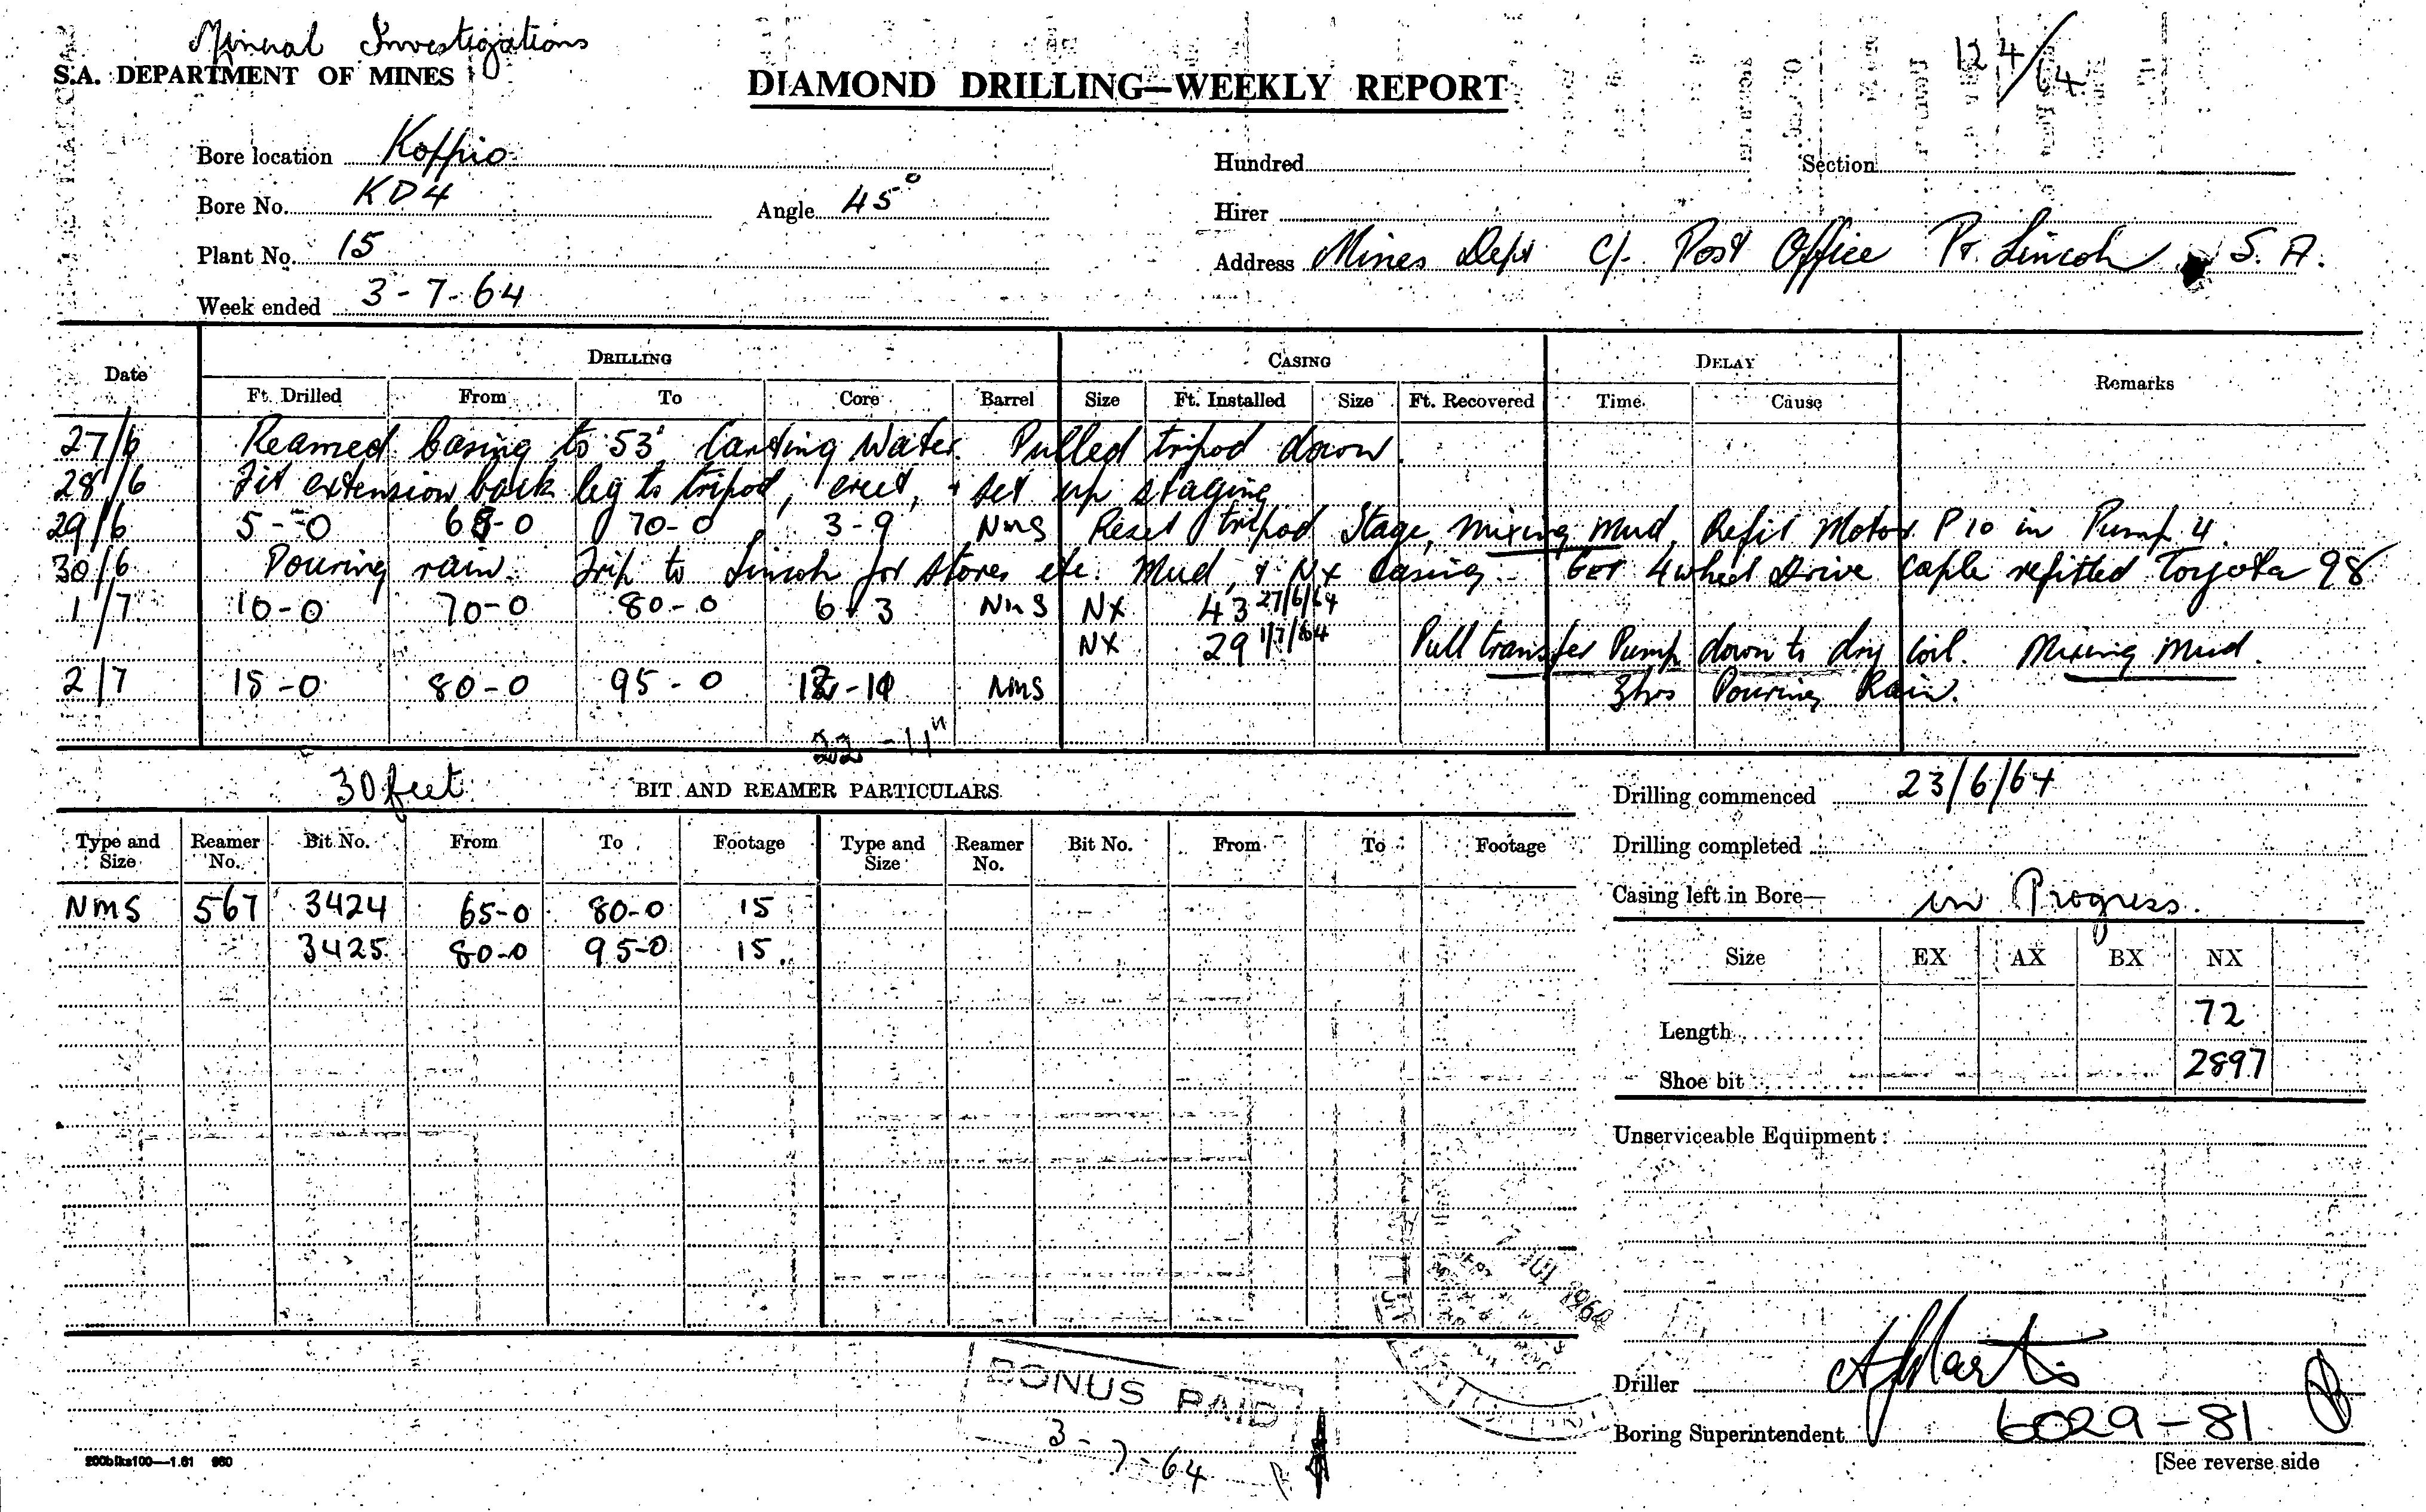 Mineral Investigations
S.A. DEPARTMENT OF MINES
DIAMOND DRILLING—WEEKLY REPORT
124/64
Bore location Koppio
Hundred Section
Bore No. KD4 Angle 45°
Hirer
Plant No. 15
Address Mines Dept C/- Post Office Pt. Lincoln S. A.
Week ended 3-7-64
Date DRILLING CASING DELAY Remarks
Ft. Drilled From To Core Barrel Size Ft. Installed Size Ft. Recovered Time Cause
27/6 Reamed Casing to 53' Carting Water. Pulled tripod down.
28/6 Fit extension back leg to tripod, erect, & set up staging
29/6 5-0 65-0 70-0 3-9 NMS Reset tripod Stage, Mixing Mud. Refit Motor P10 in Pump 4.
30/6 Pouring rain. Trip to Lincoln for stores etc. Mud, & NX Casing. Got 4 wheel Drive refitted Toyota 98
1/7 10-0 70-0 80-0 6-3 NMS NX 43 27/6/64
NX 29 1/7/64 Pull transfer Pump down to dry coil. Mixing Mud.
2/7 15-0 80-0 95-0 NMS 3hrs Pouring Rain.
22-11"
30 feet
BIT AND REAMER PARTICULARS
Drilling commenced 23/6/64
Type and Size Reamer No. Bit No. From To Footage Type and Size Reamer No. Bit No. From To Footage
Drilling completed
NMS 567 3424 65-0 80-0 15
Casing left in Bore— in Progress.
3425 80-0 95-0 15.
Size EX AX BX NX
Length 72
Shoe bit 2897
Unserviceable Equipment:
7 JUL 1964
BONUS PAID
3-7-64
Driller A J Martin
Boring Superintendent 6029-81
200blks100—1.61 960
[See reverse side